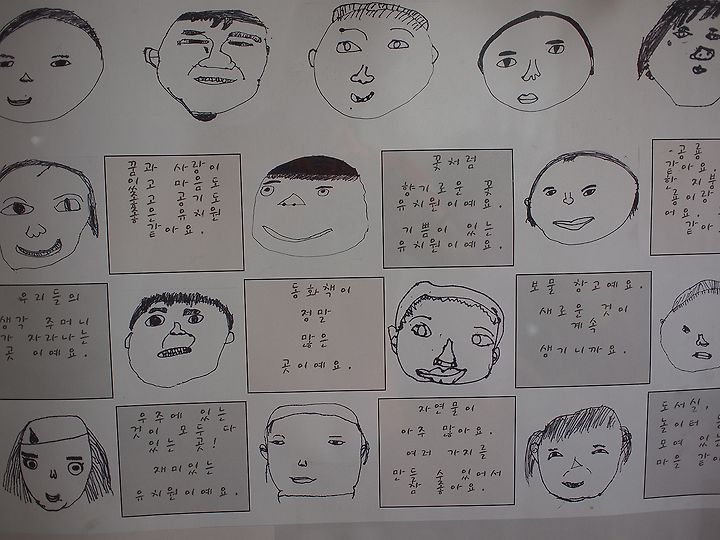 꿈과 사랑이
있고 마음도
좋고 공기도
좋은 유치원
같아요.
꽃처럼
향기로운 꽃
유치원이예요.
기쁨이 있는
유치원이예요.
공룡
같아요.
한 지붕
룡이랑
어요.
같아
우리들의
생각 주머니
가 자라나는
곳 이예요.
동화책이
정말
많은
곳이예요.
보물 창고예요.
새로운 것이
계속
생기니까요.
우주에 있는
것이 모두 다
있는 곳!
재미있는
유치원이예요.
자연물이
아주 많아요.
여러 가지를
만들 수 있어서
참 좋아요.
도서실,
놀이터
모여
마을 같